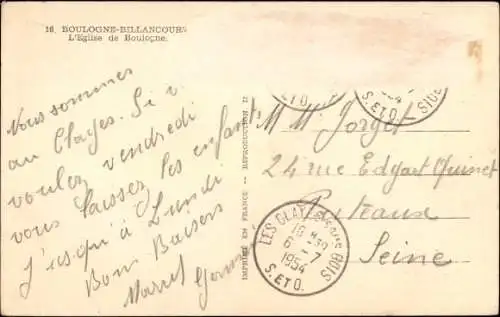 16. BOULOGNE-BILLANCOURT
L'Eglise de Boulogne.
Nous sommes
au Clayes. Si v.
voulez vendredi
vous laissez les enfants
J'usqu'à Lundi
Bons Baisers
Marcel
IMPRIMÉ EN FRANCE — REPRODUCTION
S. ET O.
S. ET O.
BOIS
M Mr Jorget
24 rue Edgart Quinet
Puteaux
Seine
LES CLAYES-SOUS-BOIS
16 H 30
6 -7
1954
S. ET O.